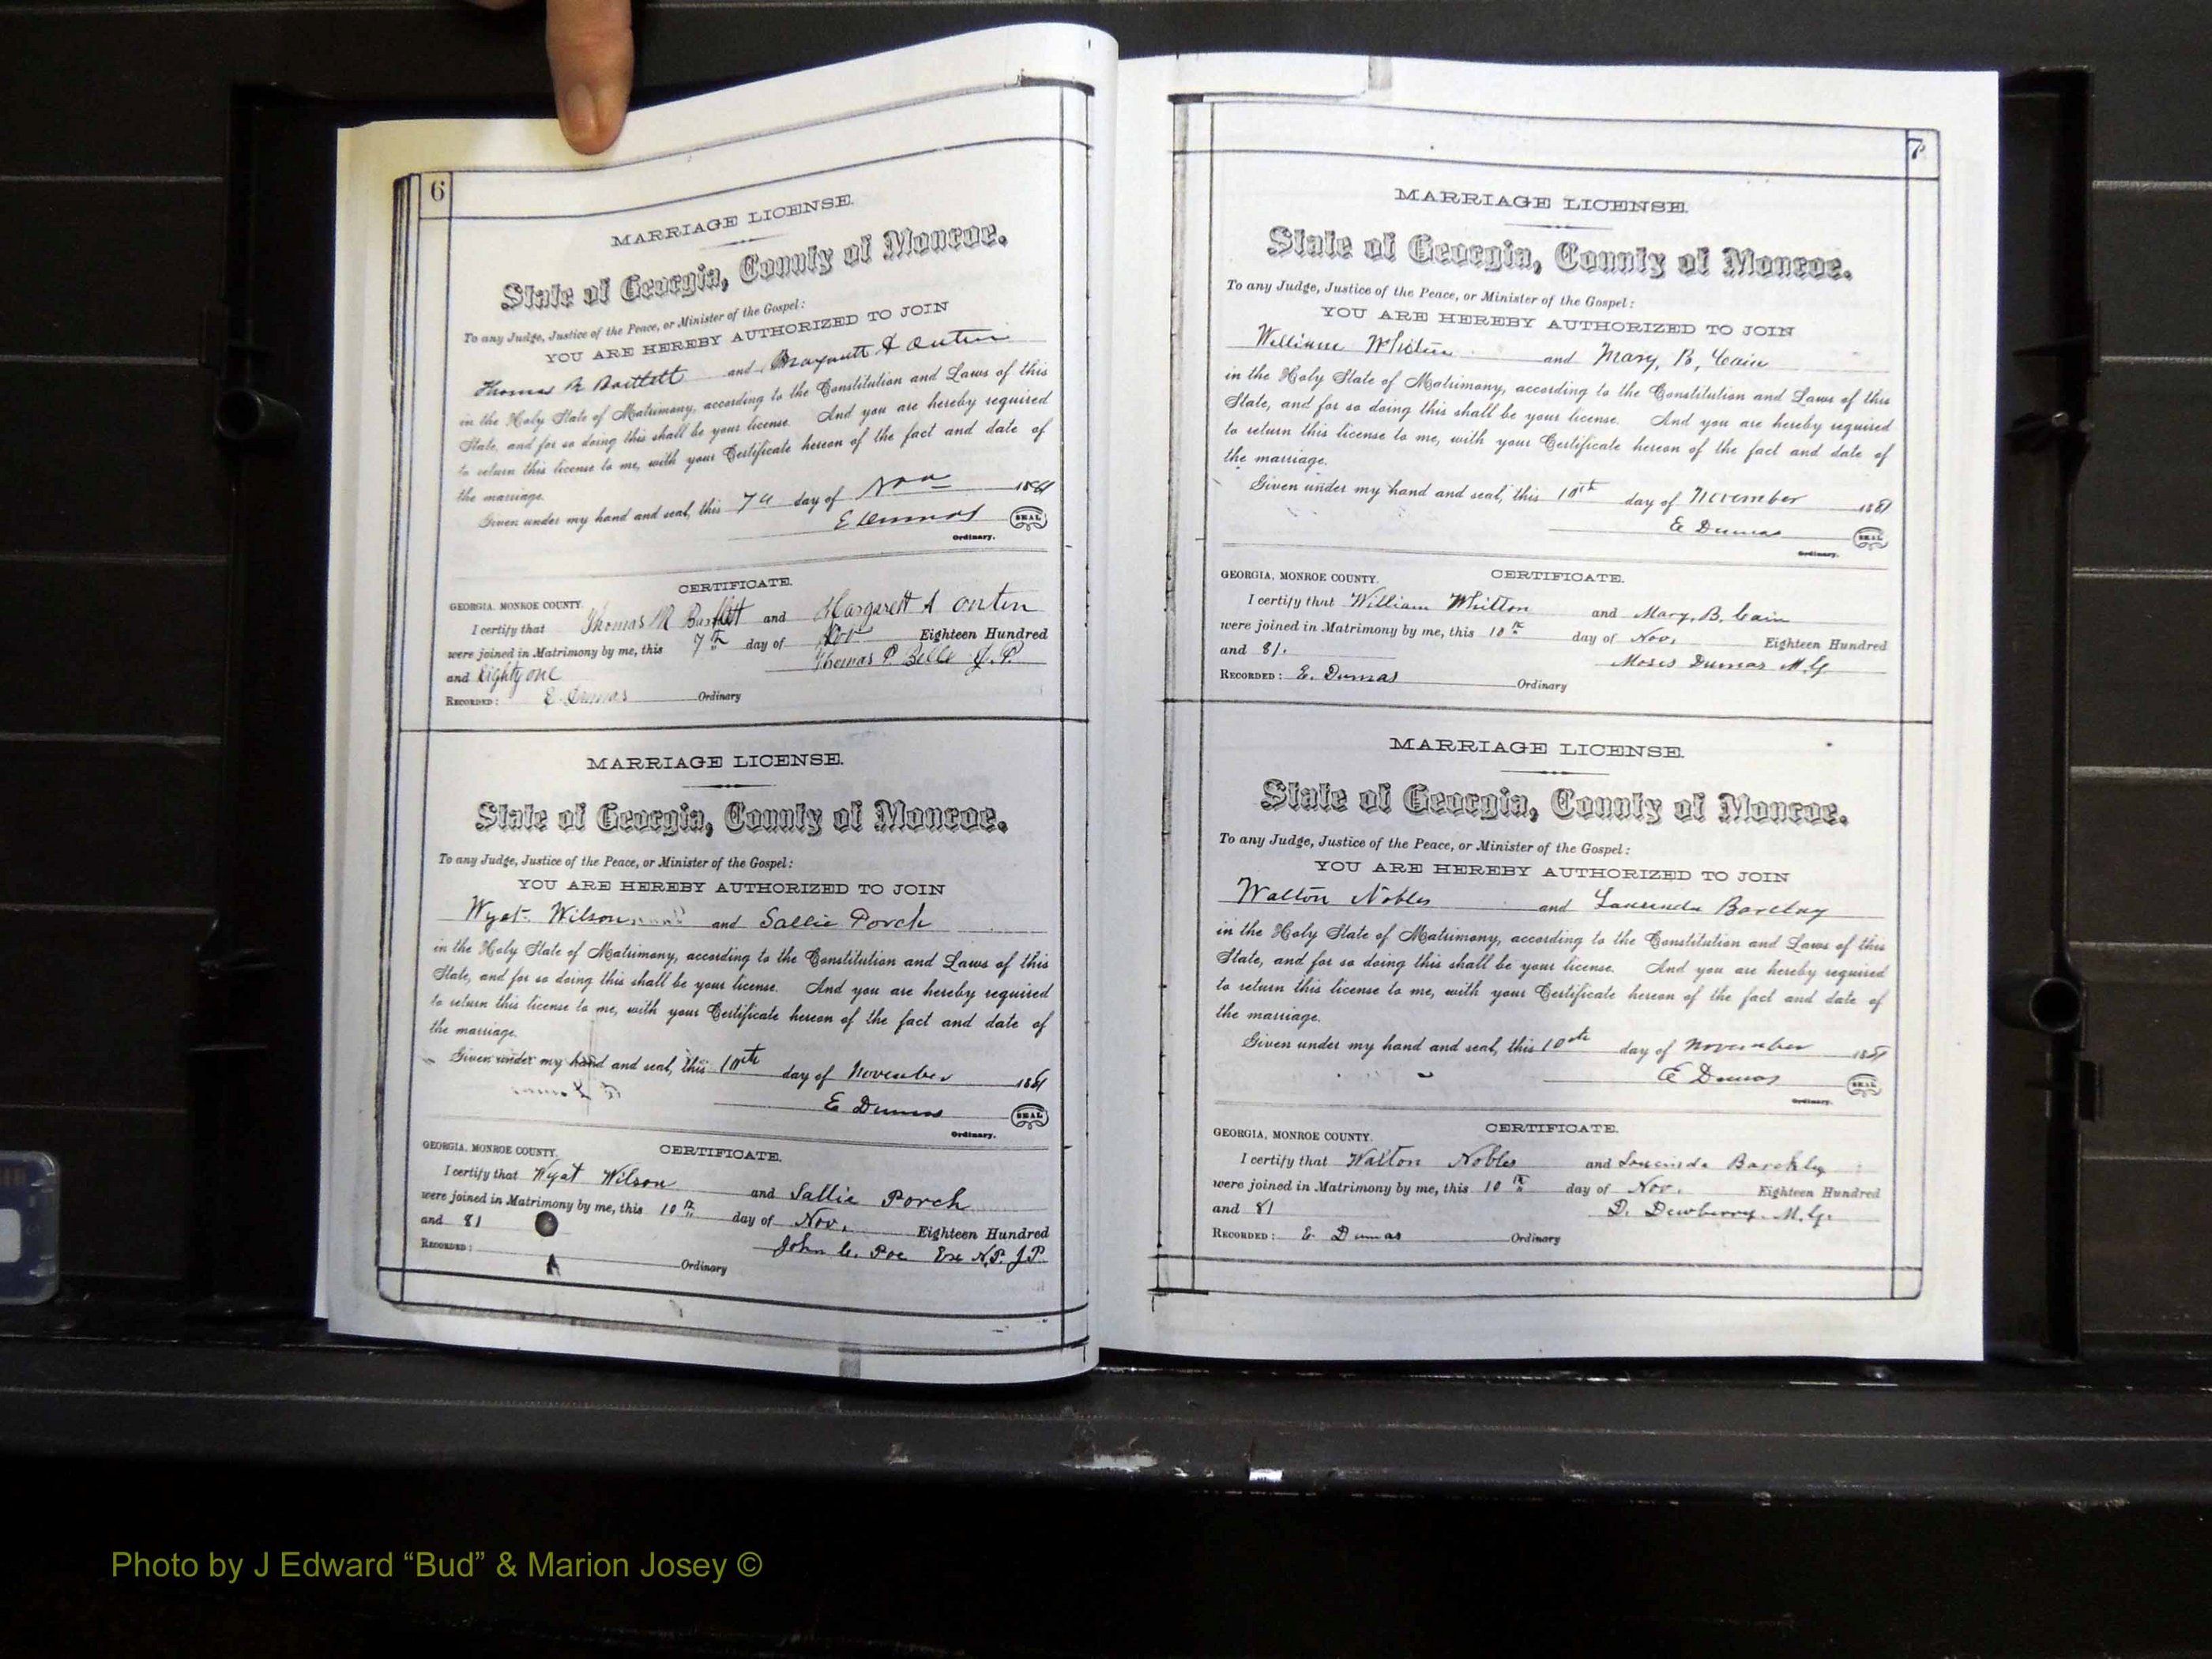 6
MARRIAGE LICENSE.
State of Georgia, County of Monroe.
To any Judge, Justice of the Peace, or Minister of the Gospel:
YOU ARE HEREBY AUTHORIZED TO JOIN
Thomas M Bartlett and A
in the Holy State of Matrimony, according to the Constitution and Laws of this
State, and for so doing this shall be your license. And you are hereby required
to return this license to me, with your Certificate hereon of the fact and date of
the marriage.
Given under my hand and seal, this 7th day of Nov 1881
E Dumas SEAL
Ordinary.
CERTIFICATE.
GEORGIA, MONROE COUNTY.
I certify that Thomas M Bartlett and Margarett A
were joined in Matrimony by me, this 7th day of Nov Eighteen Hundred
and Eighty one Thomas P Bell J.P.
RECORDED: E. Dumas Ordinary
MARRIAGE LICENSE.
State of Georgia, County of Monroe.
To any Judge, Justice of the Peace, or Minister of the Gospel:
YOU ARE HEREBY AUTHORIZED TO JOIN
Wyat Wilson and Sallie Porch
in the Holy State of Matrimony, according to the Constitution and Laws of this
State, and for so doing this shall be your license. And you are hereby required
to return this license to me, with your Certificate hereon of the fact and date of
the marriage.
Given under my hand and seal, this 10th day of November 1881
E Dumas SEAL
Ordinary.
GEORGIA, MONROE COUNTY. CERTIFICATE.
I certify that Wyat Wilson and Sallie Porch
were joined in Matrimony by me, this 10th day of Nov. Eighteen Hundred
and 81 John C. Poe Exc N.P. J.P.
RECORDED: Ordinary
7
MARRIAGE LICENSE.
State of Georgia, County of Monroe.
To any Judge, Justice of the Peace, or Minister of the Gospel:
YOU ARE HEREBY AUTHORIZED TO JOIN
William Whitton and Mary, B, Cain
in the Holy State of Matrimony, according to the Constitution and Laws of this
State, and for so doing this shall be your license. And you are hereby required
to return this license to me, with your Certificate hereon of the fact and date of
the marriage.
Given under my hand and seal, this 10th day of November 1881
E Dumas SEAL
Ordinary.
GEORGIA, MONROE COUNTY. CERTIFICATE.
I certify that William Whitton and Mary, B. Cain
were joined in Matrimony by me, this 10th day of Nov, Eighteen Hundred
and 81. Moses Dumas M.G.
RECORDED: E. Dumas Ordinary
MARRIAGE LICENSE.
State of Georgia, County of Monroe.
To any Judge, Justice of the Peace, or Minister of the Gospel:
YOU ARE HEREBY AUTHORIZED TO JOIN
Walton Nobles and Barclay
in the Holy State of Matrimony, according to the Constitution and Laws of this
State, and for so doing this shall be your license. And you are hereby required
to return this license to me, with your Certificate hereon of the fact and date of
the marriage.
Given under my hand and seal, this 10th day of November 1881
E Dumas SEAL
Ordinary.
GEORGIA, MONROE COUNTY. CERTIFICATE.
I certify that Walton Nobles and Loucinda
were joined in Matrimony by me, this 10th day of Nov. Eighteen Hundred
and 81 D. Dewberry. M.G.
RECORDED: E. Dumas Ordinary
Photo by J Edward “Bud” & Marion Josey ©